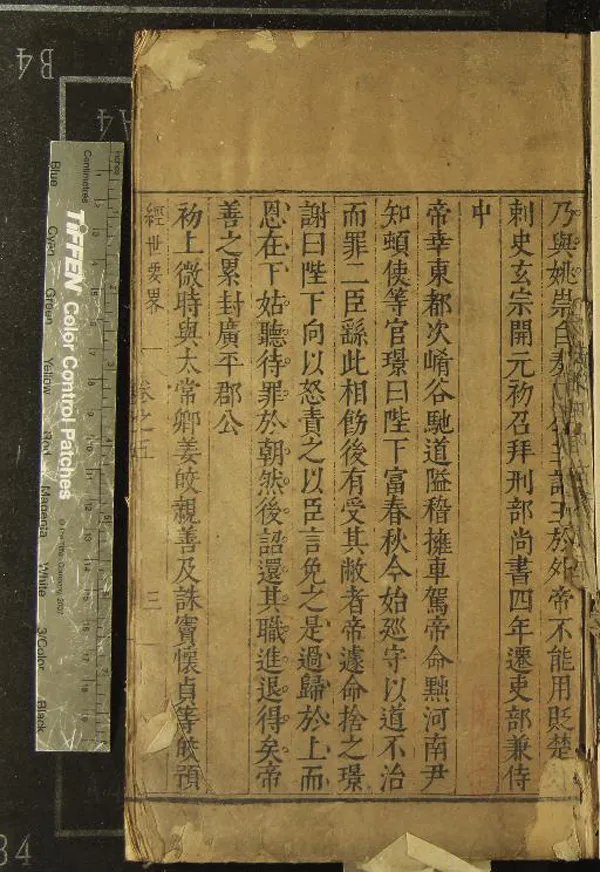 乃與姚崇白奏
主於外帝不能用貶楚
刺史玄宗開元初召拜刑部尚書四年遷吏部兼侍
中
帝幸東都次崤谷馳道隘稽擁車駕帝命黜河南尹
知頓使等官璟曰陛下富春秋今始廵守以道不治
而罪二臣繇此相飭後有受其敝者帝遽命捨之璟
謝曰陛下向以怒責之以臣言免之是過歸於上而
恩在下姑聽待罪於朝然後詔還其職進退得矣帝
善之累封廣平郡公
初上微時與太常卿姜皎親善及誅竇懷貞等皎預
經世要畧 卷之五 三
B4
A4
B4
TIFFEN Color Control Patches
© The Tiffen Company, 2007
Centimetres
Inches
Blue
Cyan
Green
Yellow
Red
Magenta
White
3/Color
Black